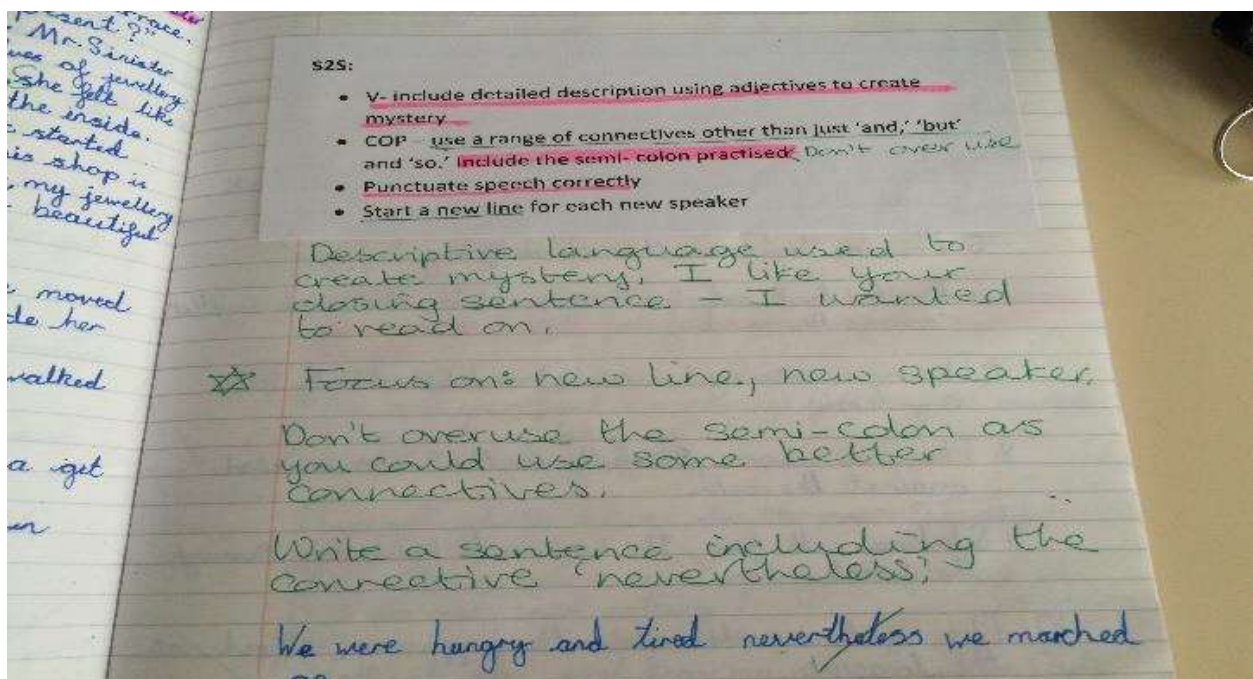 race.
esent?"
Mr. Sinister
ves of jewellery
She felt like
the inside.
started
is shop is
my jewellery
beautiful
moved
de her
walked
a get
S2S:
• V- include detailed description using adjectives to create
mystery
• COP – use a range of connectives other than just 'and,' 'but'
and 'so.' Include the semi-colon practised. Don't over use
• Punctuate speech correctly
• Start a new line for each new speaker
Descriptive language used to
create mystery. I like your
closing sentence – I wanted
to read on.
Focus on: new line, new speaker.
Don't overuse the semi-colon as
you could use some better
connectives.
Write a sentence including the
connective 'nevertheless'.
We were hungry and tired nevertheless we marched